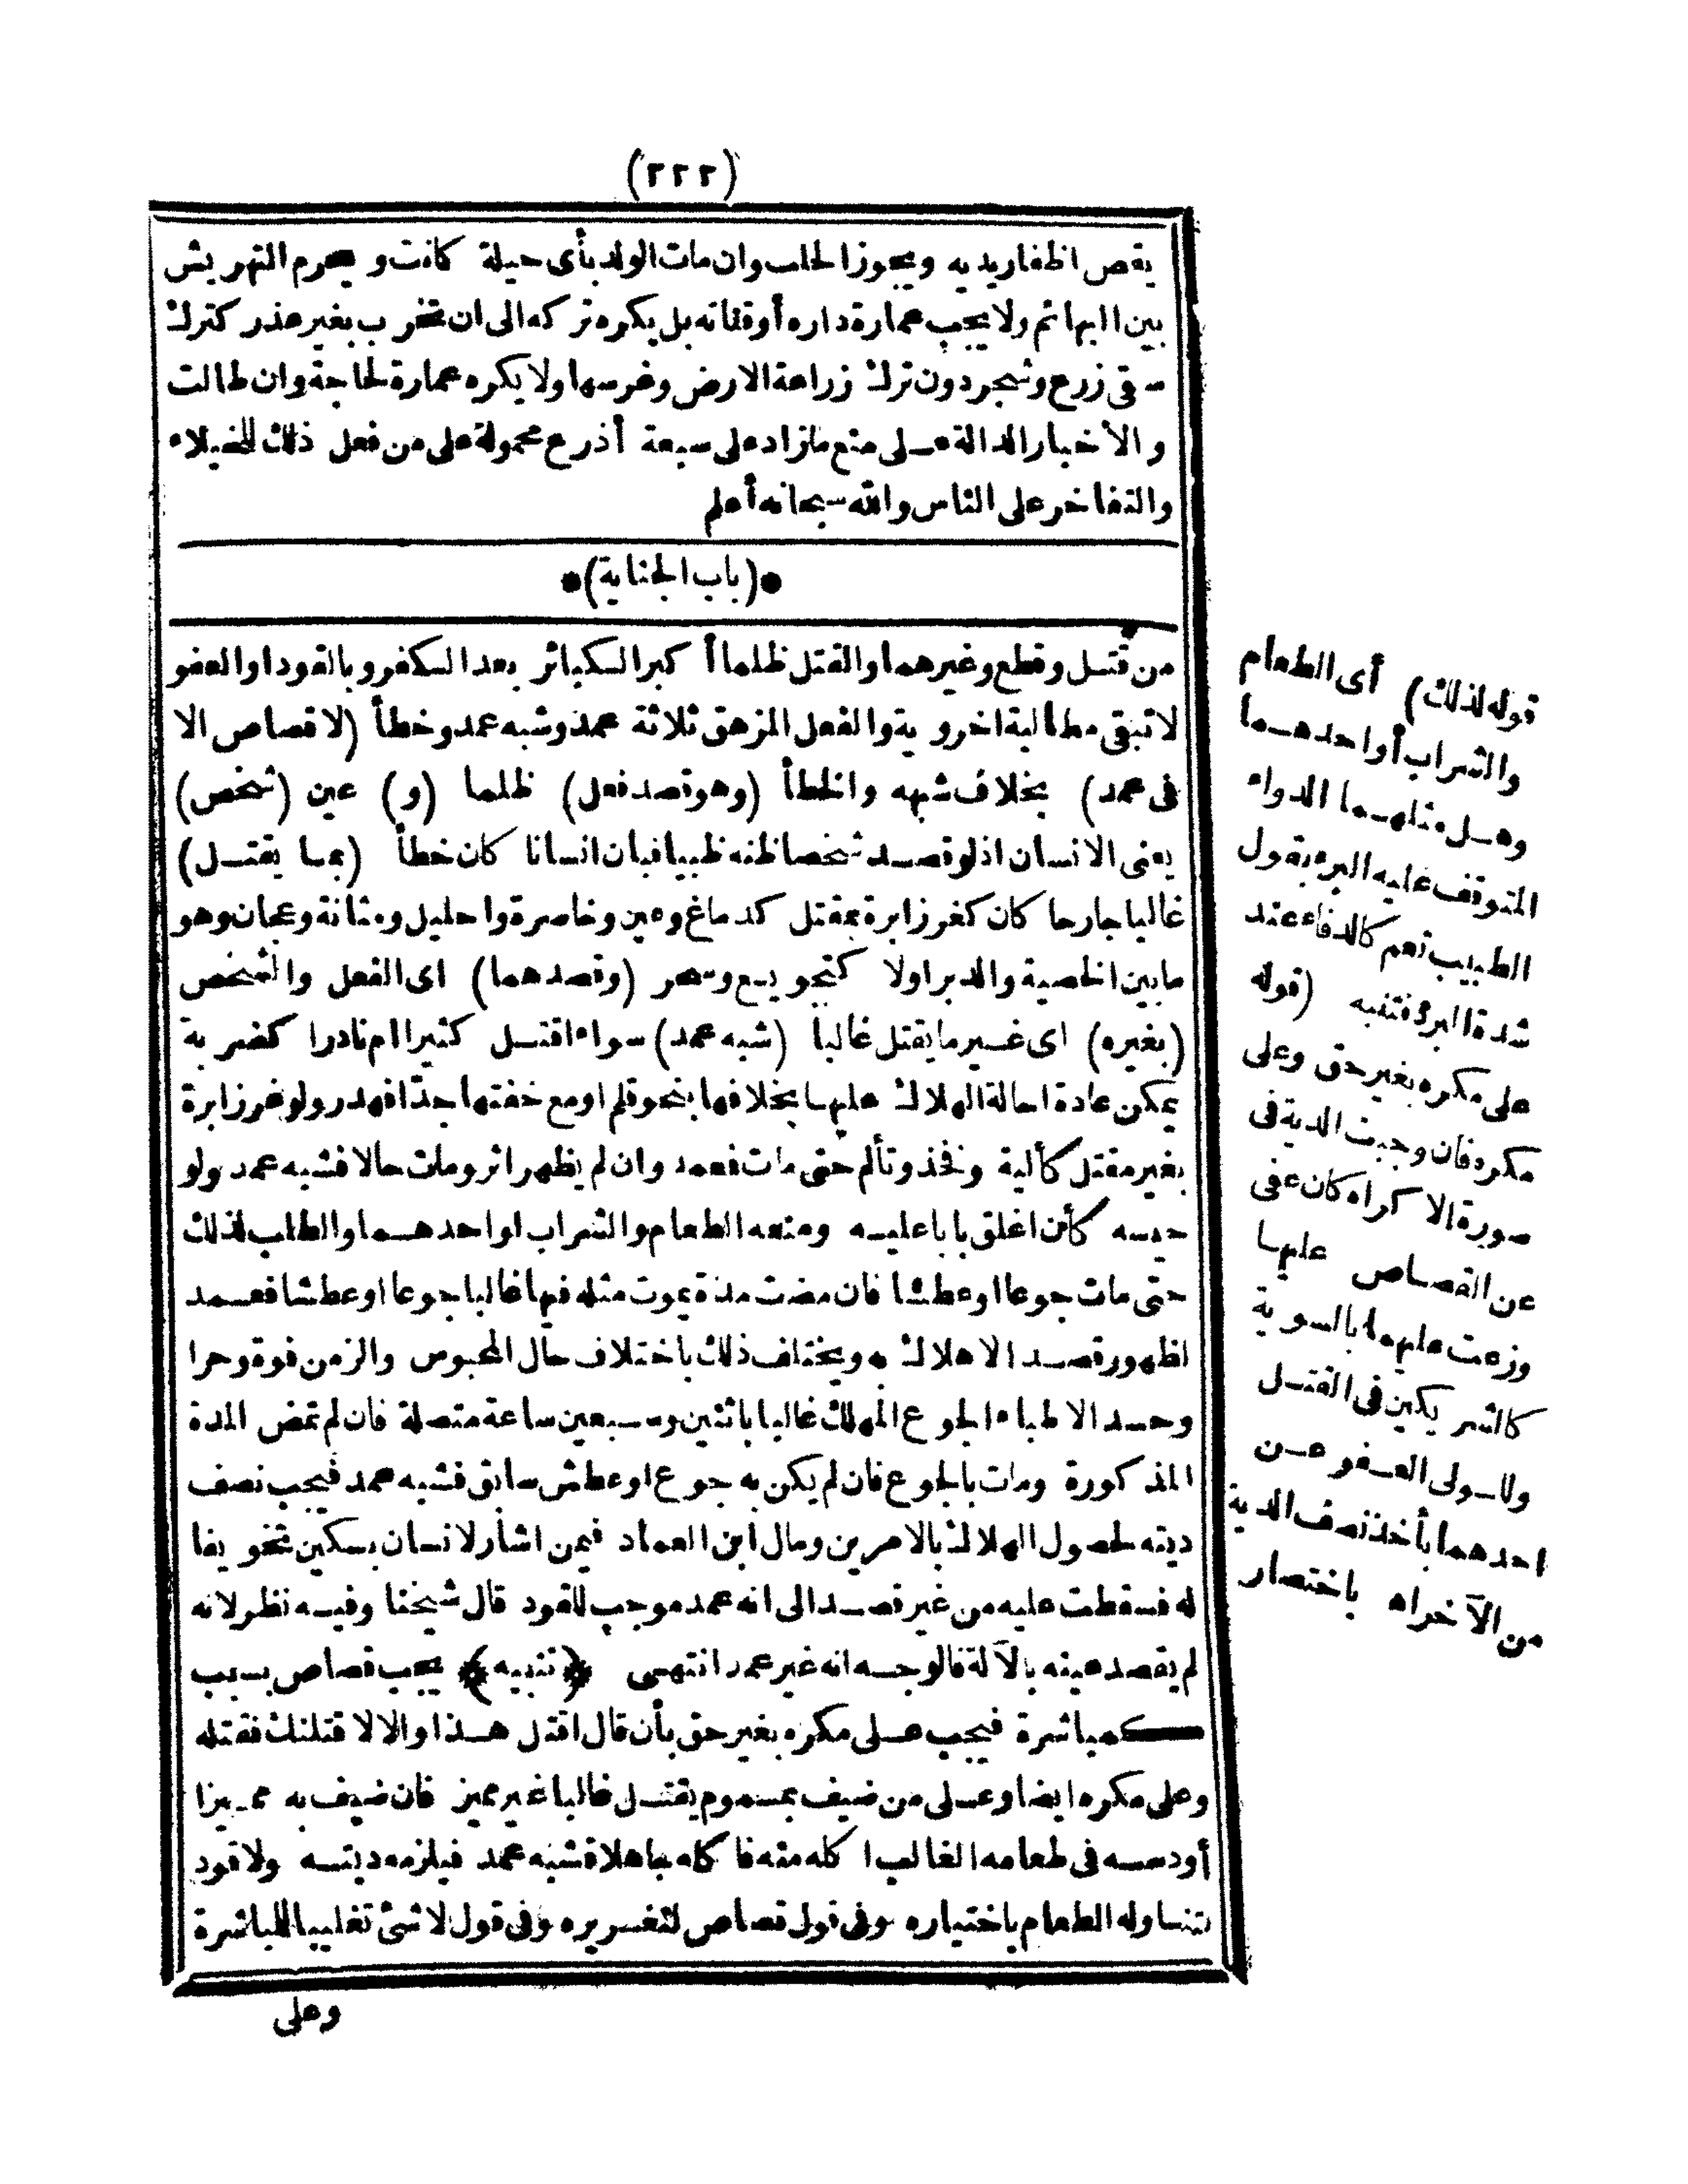 (٢٢٢)
يقص اظفاريديه ويجوز الحلب وان مات الولد بأى حيلة كانت و يحرم التهريش
بين البهائم ولا يجب عمارة داره أو قناته بل يكره تركه الى ان تخرب بغير عذر كترك
سقى زرع وشجر دون ترك زراعة الارض وغرسها ولا يكره عمارة لحاجة وان طالت
والأخبار الدالة على منع ما زاد على سبعة أذرع محمولة على من فعل ذلك للخيلاء
والتفاخر على الناس والله سبحانه أعلم
*(باب الجناية)*
من قتل وقطع وغيرهما والقتل ظلما أكبر الكبائر بعد الكفر وبالقود او العفو
لا تبقى مطالبة اخروية والفعل المزهق ثلاثة عمد وشبه عمد وخطأ (لا قصاص الا
فى عمد) بخلاف شبهه والخطأ (وهو قصد فعل) ظلما (و) عين (شخص)
يعنى الانسان اذ لو قصد شخصا ظنه ظبيا فبان انسانا كان خطأ (بما يقتل)
غالبا جارحا كان كغرز ابرة بمقتل كدماغ وعين وخاصرة واحليل ومثانة وعجان وهو
ما بين الخصية والدبر اولا كتجويع وسحر (وقصدهما) اى الفعل والشخص
(بغيره) اى غير ما يقتل غالبا (شبه عمد) سواء اقتل كثيرا ام نادرا كضربة
يمكن عادة احالة الهلاك عليها بخلافها بنحو قلم او مع خفتها جدّا فهدر ولو غرز ابرة
بغير مقتل كألية وفخذ وتألم حتى مات فعمد وان لم يظهر اثر ومات حالا فشبه عمد ولو
حبسه كأن اغلق بابا عليه ومنعه الطعام والشراب او احدهما والطلب لذلك
حتى مات جوعا او عطشا فان مضت مدّة يموت مثله فيها غالبا جوعا او عطشا فعمد
لظهور قصد الاهلاك به ويختلف ذلك باختلاف حال المحبوس والزمن قوة وحرا
وحد الاطباء الجوع المهلك غالبا باثنين وسبعين ساعة متصلة فان لم تمض المدة
المذكورة ومات بالجوع فان لم يكن به جوع او عطش سابق فشبه عمد فيجب نصف
ديته لحصول الهلاك بالامرين ومال ابن العماد فيمن اشار لانسان بسكين تخويفا
له فسقطت عليه من غير قصد الى انه عمد موجب للقود قال شيخنا وفيه نظر لانه
لم يقصد عينه بالآلة فالوجه انه غير عمد انتهى ﴿تنبيه﴾ يجب قصاص بسبب
كمباشرة فيجب على مكره بغير حق بأن قال اقتل هذا والا لاقتلنك فقتله
وعلى مكره ايضا وعلى من ضيف بمسموم يقتل غالبا غير مميز فان ضيف به مميزا
أو دسه فى طعامه الغالب اكله منه فاكله جاهلا فشبه عمد فيلزمه ديته ولا قود
بتناوله الطعام باختياره وفى قول قصاص لتغريره وفى قول لا شئ تغليبا للمباشرة
وعلى
قوله لذلك) أى الطعام
والشراب أو احدهما
وهل مثلهما الدواء
المتوقف عليه البرء بقول
الطبيب نعم كالدفاء عند
شدة البرد فتنبه (قوله
على مكره بغير حق وعلى
مكره فان وجبت الدية فى
صورة الاكراه كان عفى
عن القصاص عليها
وزعت عليهما بالسوية
كالشريكين فى القتل
وللولى العفو عن
احدهما بأخذ نصف الدية
من الآخر اه باختصار